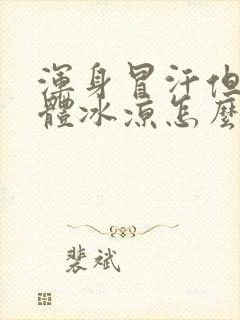 渾身冒汗但
體冰涼怎麼
裴斌